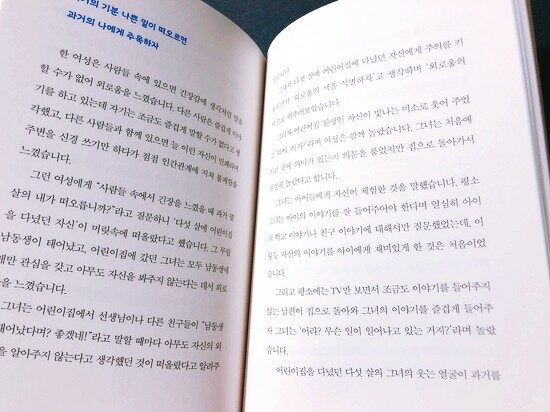 거의 기분 나쁜 일이 떠오르면
과거의 나에게 주목하자
한 여성은 사람들 속에 있으면 긴장감에 생각처럼 말을
할 수가 없어 외로움을 느꼈습니다. 다른 사람은 즐겁게 이야
기를 하고 있는데 자기는 조금도 즐겁게 말할 수가 없다고 생
각했고, 다른 사람들과 함께 있으면 늘 이런 자신이
주변을 신경 쓰기만 하다가 점점 인간관계에 지쳐
느꼈습니다.
그런 여성에게 “사람들 속에서 긴장을 느꼈을 때 과거 몇
살의 내가 떠오릅니까?”라고 질문하니 ‘다섯 살에 어린이집
을 다녔던 자신’이 머릿속에 떠올랐다고 했습니다. 그 무렵
남동생이 태어났고, 어린이집에 갔던 그녀는 모두 남동생에
게만 관심을 갖고 아무도 자신을 봐주지 않는다는 데서 외로
그녀는 어린이집에서 선생님이나 다른 친구들이 “남동생
태어났다며? 좋겠네!”라고 말할 때마다 아무도 자신의 외
을 알아주지 않는다고 생각했던 것이 떠올랐다고 알려주
다섯 살에 어린이집에 다녔던 자신에게 주의를 기
적을 식별하자’고 생각하며 ‘외로움의
맞추어보았습니다.
그러자 어린이집 원생인 자신이 빛나는 미소로 웃어 주었
이거?’라며 여성은 깜짝 놀랐습니다. 그녀는 처음에
곳에 의미가 있는지 의문을 품었지만 집으로 돌아가서
놀랐다고 합니다.
그녀는 아이들에게 자신이 체험한 것을 말했습니다. 평소
그녀는 아이의 이야기를 잘 들어주어야 한다며 열심히 아이
의 학교 이야기나 친구 이야기에 대해서만 질문했었는데, 이
렇듯 자신의 이야기를 아이에게 재미있게 한 것은 처음이었
습니다.
그리고 평소에는 TV만 보면서 조금도 이야기를 들어주지
않는 남편이 집으로 돌아와 그녀의 이야기를 즐겁게 들어주
자 그녀는 ‘어라? 무슨 일이 일어나고 있는 거지?’라며 놀랐
습니다.
어린이집을 다녔던 다섯 살의 그녀의 웃는 얼굴이 과거를